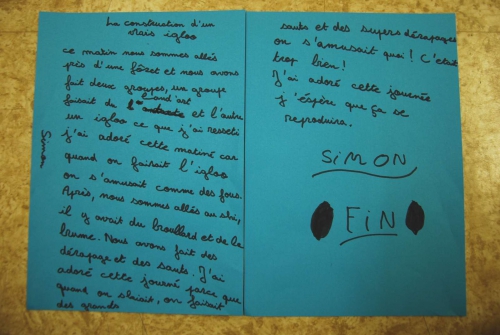 La construction d'un
vrais igloo
ce matin nous sommes allés
près d'une fôret et nous avons
fait deux groupes, un groupe
faisait du land'art et l'autre
un igloo ce que j'ai resseti
j'ai adoré cette matiné car
quand on faisait l'igloo
on s'amusait comme des fous.
Après, nous sommes allés au ski,
il y avait du broullard et de la
beume. Nous avons fait des
dérapage et des sauts. J'ai
adoré cette journé parce que
quand on skiait, on faisait
des grands
Simon
sauts et des supers dérapages
on s'amusait quoi! C'était
trop bien!
J'ai adoré cette journée
j'éspère que ça se
reproduira.
SiMON
FiN